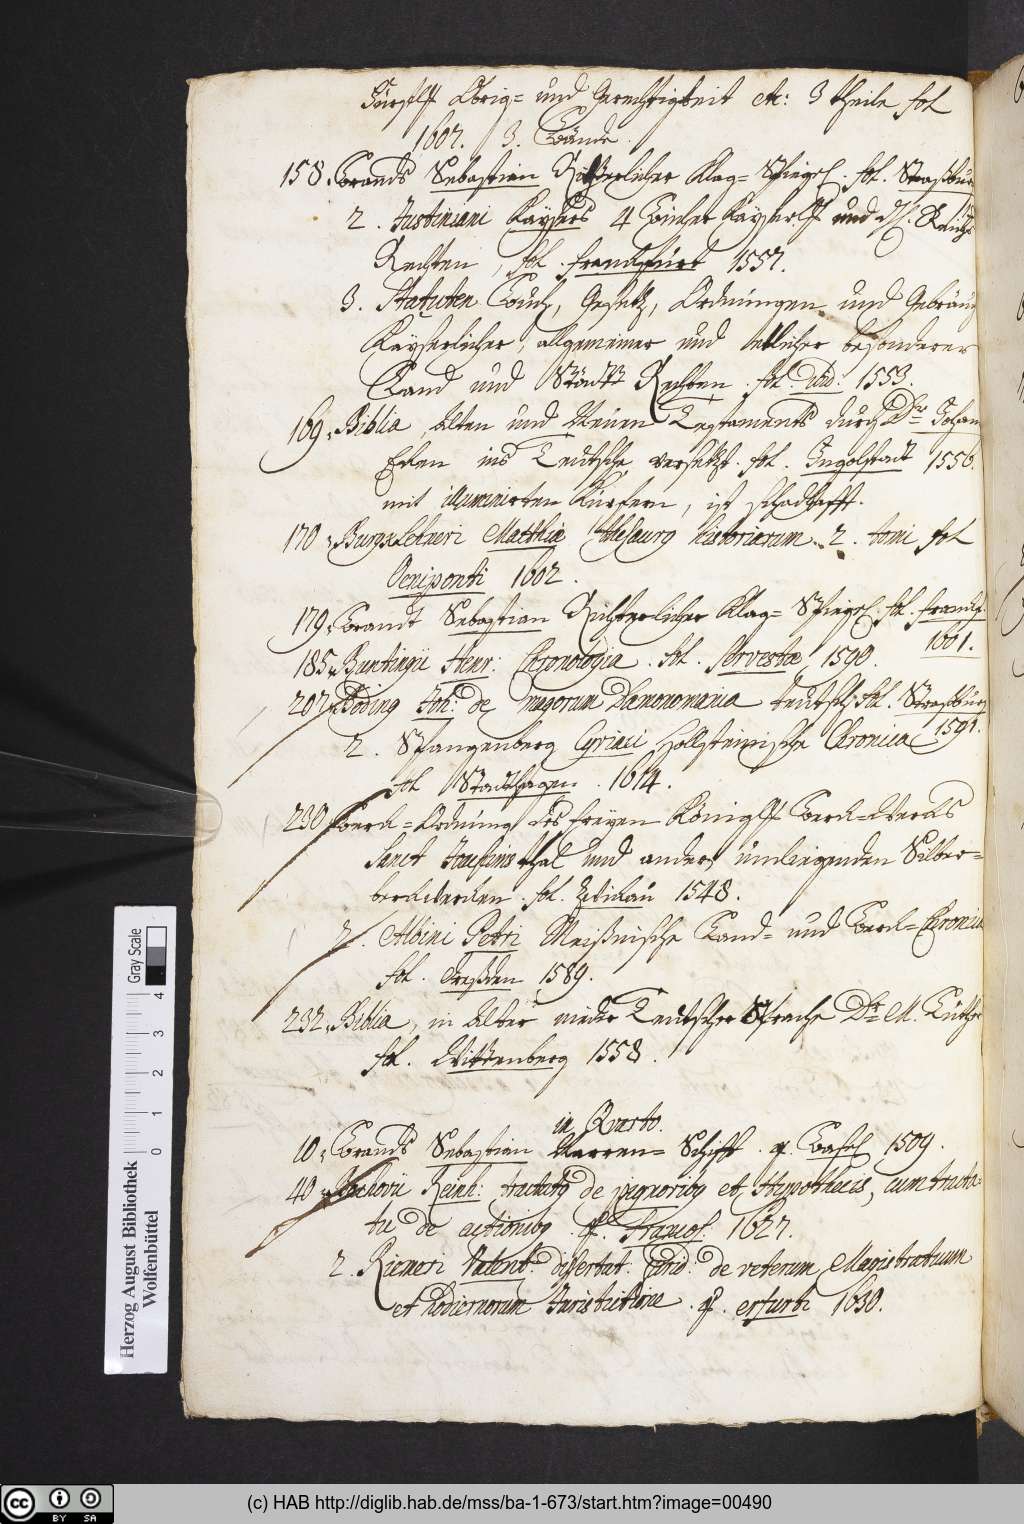 Fürstl. Obrig= und Gerechtigkeit etc: 3 theile fol
1602. 3. Bände.
158. Brands Sebastian Richterlicher Klag= Spiegel. fol. Straßbur
2. Justiniani Kaysers 4 Bücher Kayserl. und Reichs
Rechten, fol. franckfurt 1557.
3. Statuten Buch, Gesetz, Ordnungen und Gebräuch
Kayserlicher, allgemeiner und etlicher besonderer
Land und Stätt Rechten. fol. ibid: 1553.
169. Biblia, Alten und Neuen Testaments durch Dr Johan
Ecken ins Teutsche versetzt. fol. Ingolstadt 1550.
mit illuminirten Kupfern, ist schadhafft.
170. Burgklehneri Matthiæ thesaurg historiarum. 2. tomi fol
Oeniponti 1602.
179. Brandt Sebastian Richterlicher Klag= Spiegel. fol. franckf.
1601.
185. Buntingii Henr: Chronologia. fol. Servestæ, 1590.
207. Boding Joh: de magorum Dæmonomania teutsch fol. Straßburg
1591.
2. Spangenberg Cyriaci Hollsteinische Chronica
fol Stadthagen. 1614.
230. Berck=Ordnung des freyen Königl. Berck=Wercks
Sanct Joachims thal und ander umliegenden Silber=
berckwercken. fol. Zwickau 1548.
2. Albini Petri Meißnische Land= und Berck=Chronica
fol. Dreßden 1589.
232. Biblia, in Alter nieder Teutscher Sprache Dr M. Luthe
fol. Wittenberg 1558.
in Qvarto.
10. Brands Sebastian Narren= Schiff. q. Basel 1509.
40. Bachovii Reinh: tractatg de pignoribg et Hypothecis, cum tracta=
tu de actionibg. q. francof. 1627.
2. Riemeri Valent: dissertat: de veterum Magistratuum
et hodiernorum Juris dictione. q. erfurti 1630.
Gray Scale
4
3
2
1
0
Herzog August Bibliothek
Wolfenbüttel
cc BY SA
(c) HAB http://diglib.hab.de/mss/ba-1-673/start.htm?image=00490